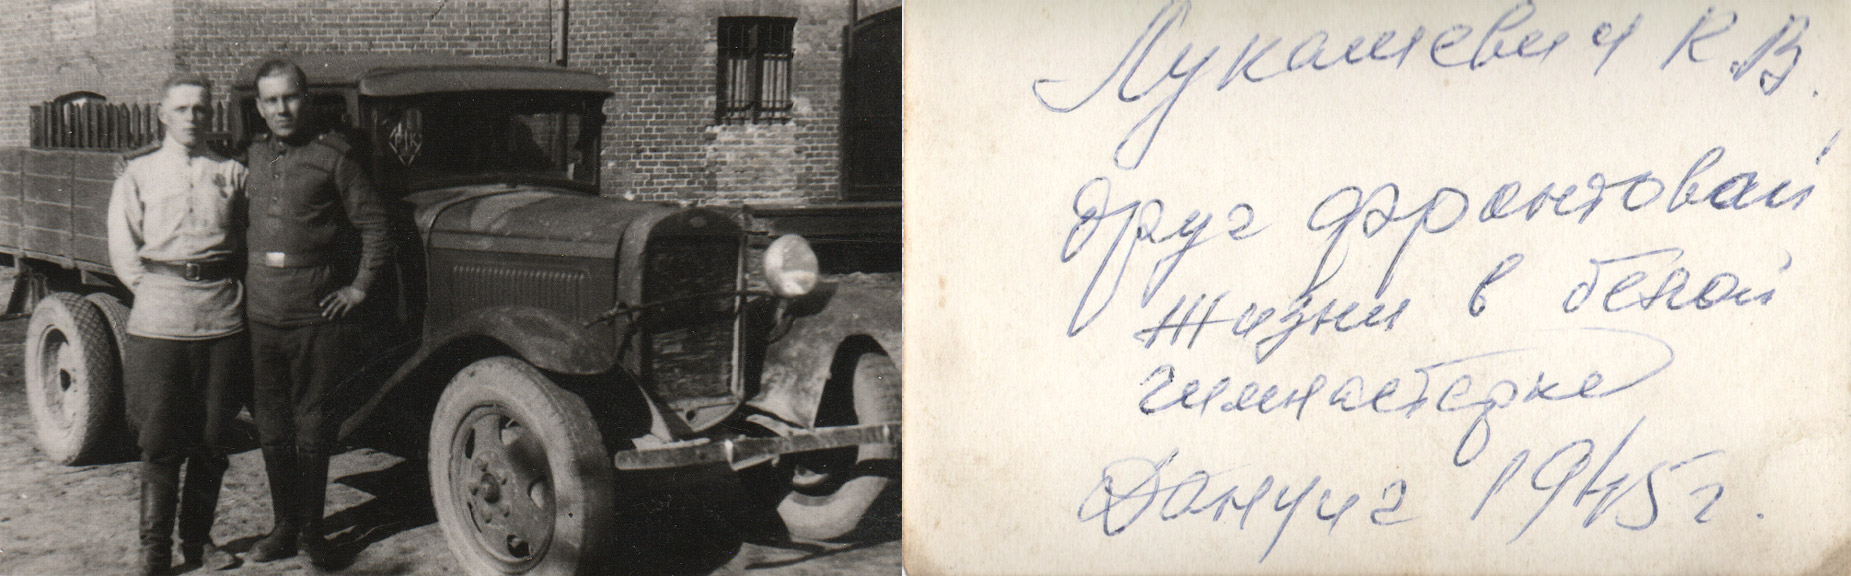 Лукашевич К.В.
друг фронтовой
жизни в белой
гимнастерке
Данциг 1945 г.